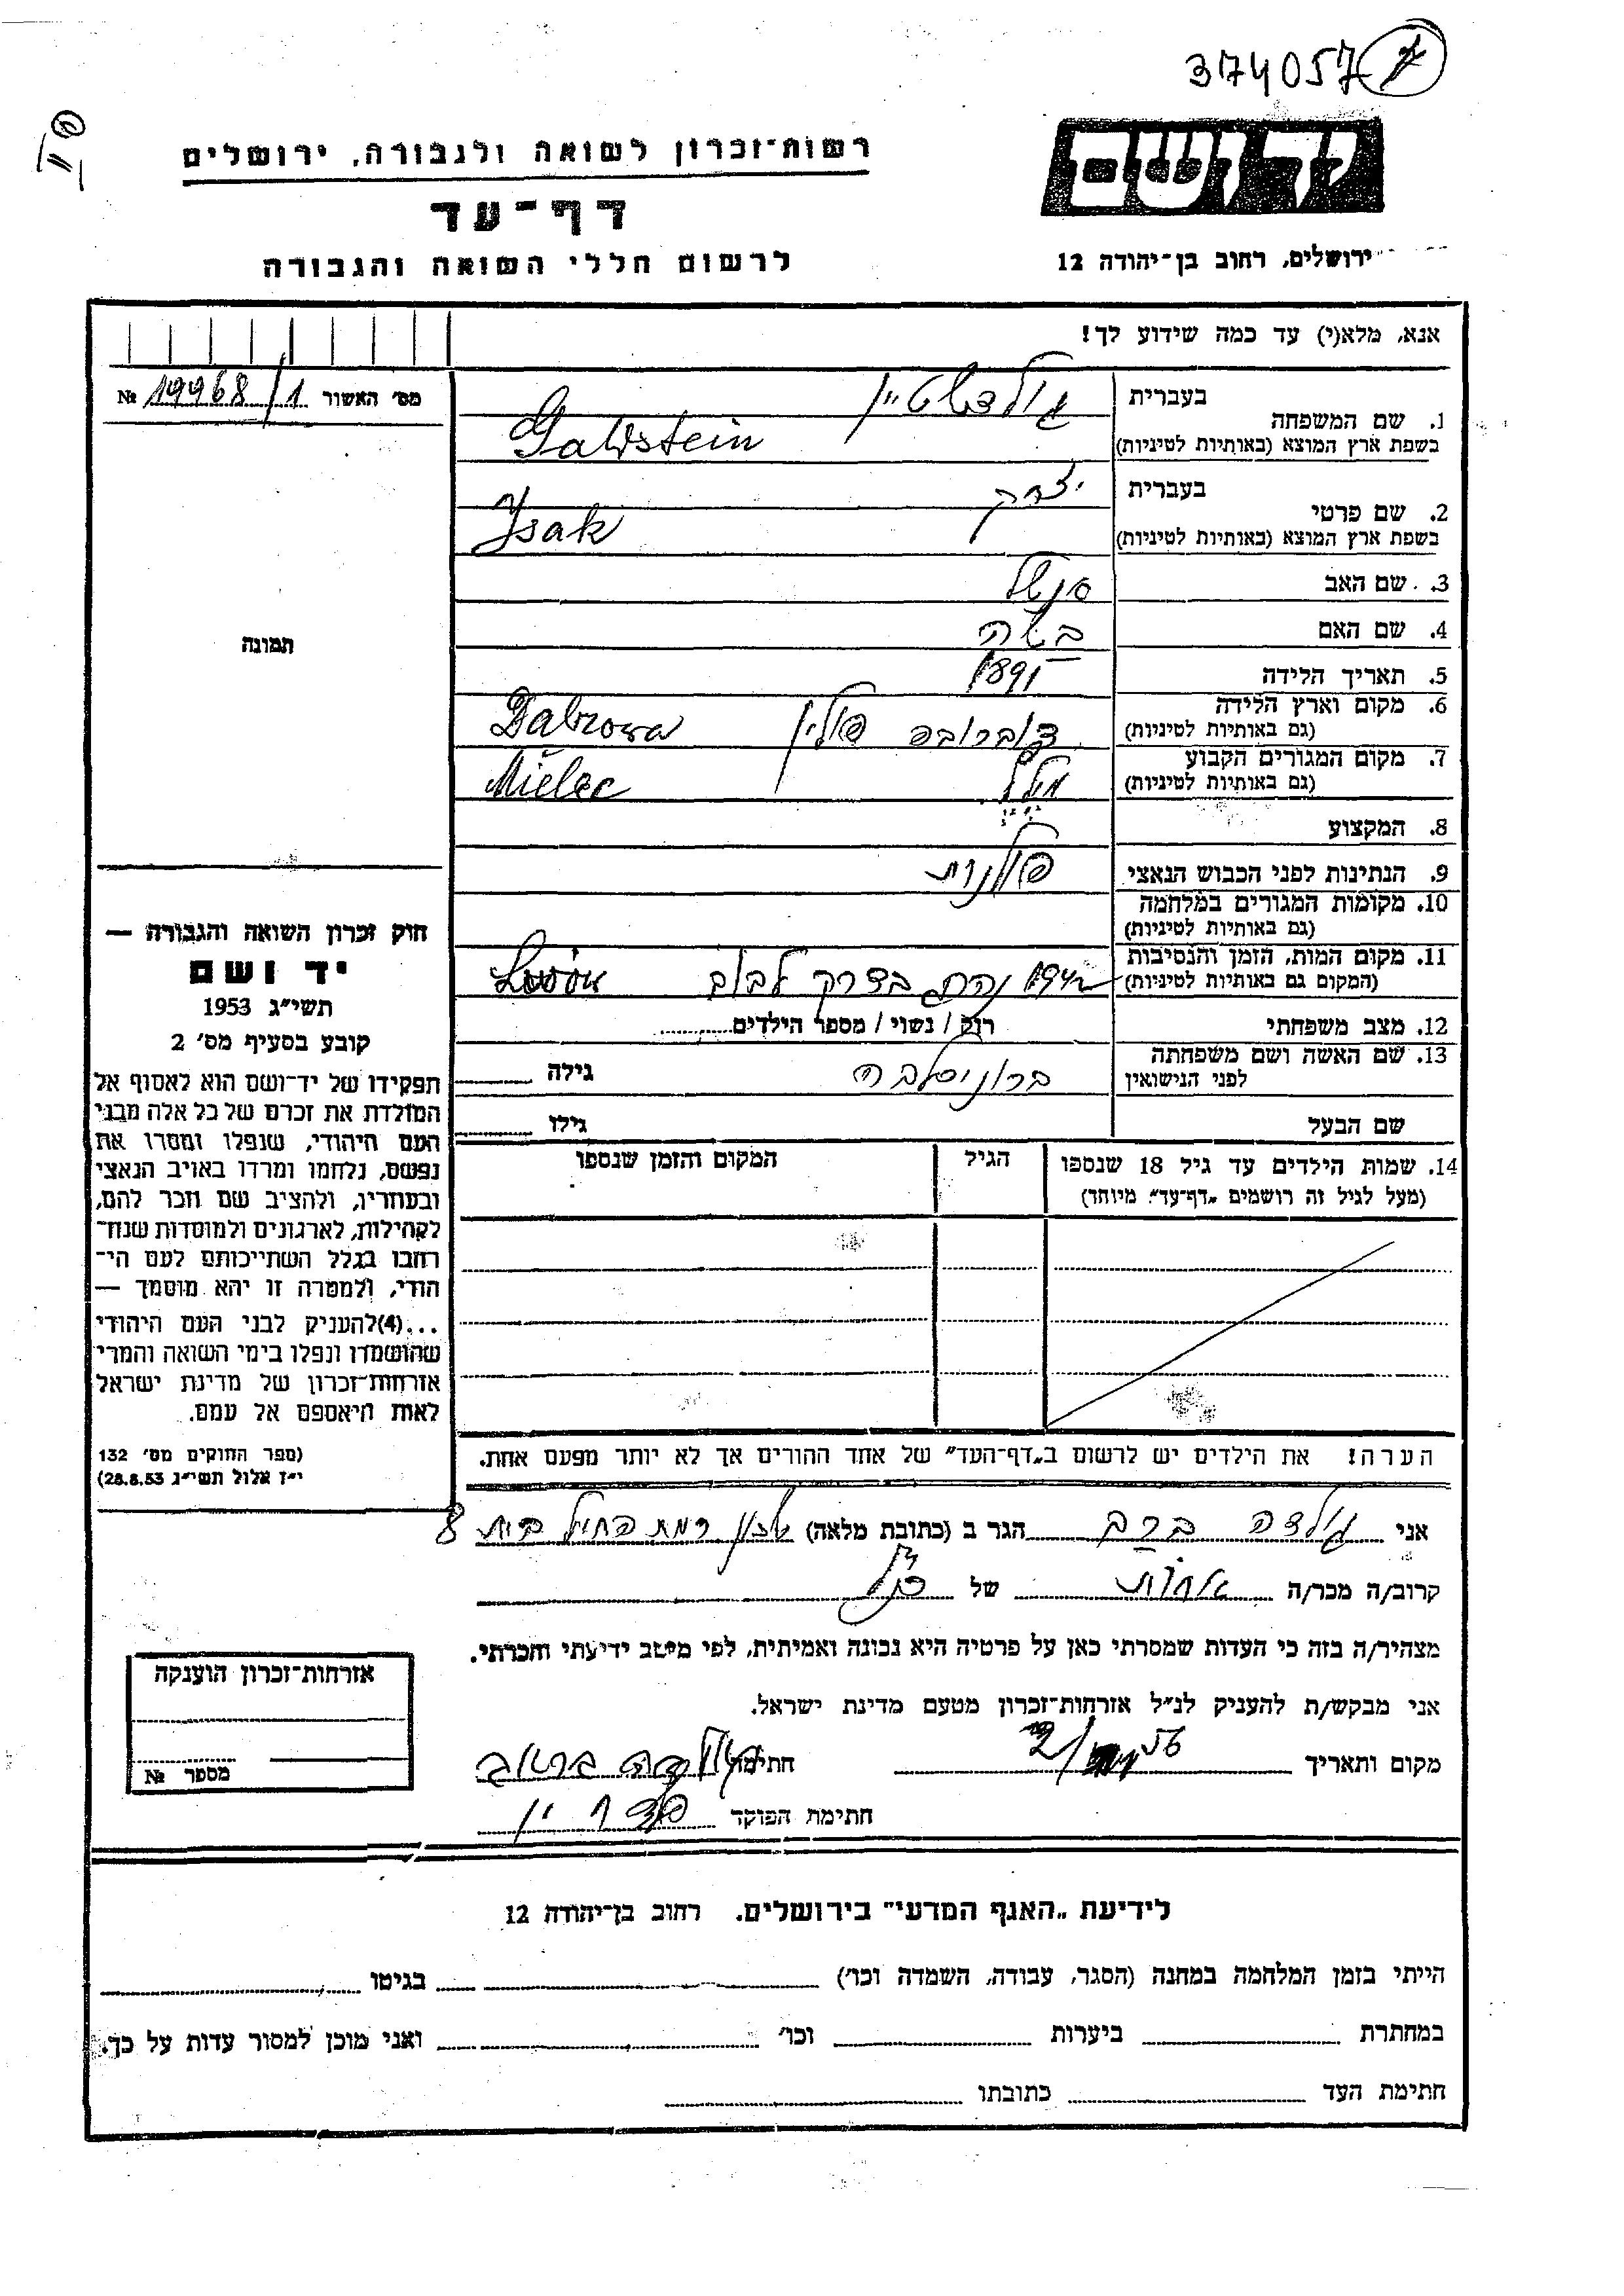 374057
רשות־זכרון לשואה ולגבורה, ירושלים
דף־עד
לרשום חללי השואה והגבורה
יד ושם
ירושלים, רחוב בן־יהודה 12
אנא, מלא(י) עד כמה שידוע לך!
מס׳ האשור 19968/1 №
תמונה
1. שם המשפחה בעברית גולדשטיין
בשפת ארץ המוצא (באותיות לטיניות) Galdstein
2. שם פרטי בעברית יצחק
בשפת ארץ המוצא (באותיות לטיניות) Ysak
3. שם האב
4. שם האם
5. תאריך הלידה 1891
6. מקום וארץ הלידה פולין Dabrowa
(גם באותיות לטיניות)
7. מקום המגורים הקבוע Mielec
(גם באותיות לטיניות)
8. המקצוע
9. הנתינות לפני הכבוש הנאצי פולנית
10. מקומות המגורים במלחמה
(גם באותיות לטיניות)
11. מקום המות, הזמן והנסיבות 1942 נהרג בדרך לבוב
(המקום גם באותיות לטיניות)
12. מצב משפחתי רוק / נשוי / מספר הילדים
13. שם האשה ושם משפחתה ברוניסלבה גילה
לפני הנישואין
שם הבעל גילו
14. שמות הילדים עד גיל 18 שנספו הגיל המקום והזמן שנספו
(מעל לגיל זה רושמים „דף־עד״ מיוחד)
הערה! את הילדים יש לרשום ב„דף־העד״ של אחד ההורים אך לא יותר מפעם אחת.
חוק זכרון השואה והגבורה —
יד ושם
תשי״ג 1953
קובע בסעיף מס׳ 2
תפקידו של יד־ושם הוא לאסוף אל
המולדת את זכרם של כל אלה מבני
העם היהודי, שנפלו ומסרו את
נפשם, נלחמו ומרדו באויב הנאצי
ובעוזריו, ולהציב שם וזכר להם,
לקהילות, לארגונים ולמוסדות שנח־
רבו בגלל השתייכותם לעם הי־
הודי, ולמטרה זו יהא מוסמך —
...(4) להעניק לבני העם היהודי
שהושמדו ונפלו בימי השואה והמרי
אזרחות־זכרון של מדינת ישראל
לאות היאספם אל עמם.
(ספר החוקים מס׳ 132
י״ז אלול תשי״ג 28.8.53)
אני גולדה הגר ב (כתובת מלאה) רמת בית 8
קרוב/ה מכר/ה אחות של הנ״ל
מצהיר/ה בזה כי העדות שמסרתי כאן על פרטיה היא נכונה ואמיתית, לפי מיטב ידיעתי והכרתי.
אני מבקש/ת להעניק לנ״ל אזרחות־זכרון מטעם מדינת ישראל.
מקום ותאריך 56 חתימה גולדה
חתימת הפוקד
אזרחות־זכרון הוענקה
מספר №
לידיעת „האגף המדעי״ בירושלים, רחוב בן־יהודה 12
הייתי בזמן המלחמה במחנה (הסגר, עבודה, השמדה וכו׳) בגיטו
במחתרת ביערות וכו׳ ואני מוכן למסור עדות על כך.
חתימת העד כתובתו